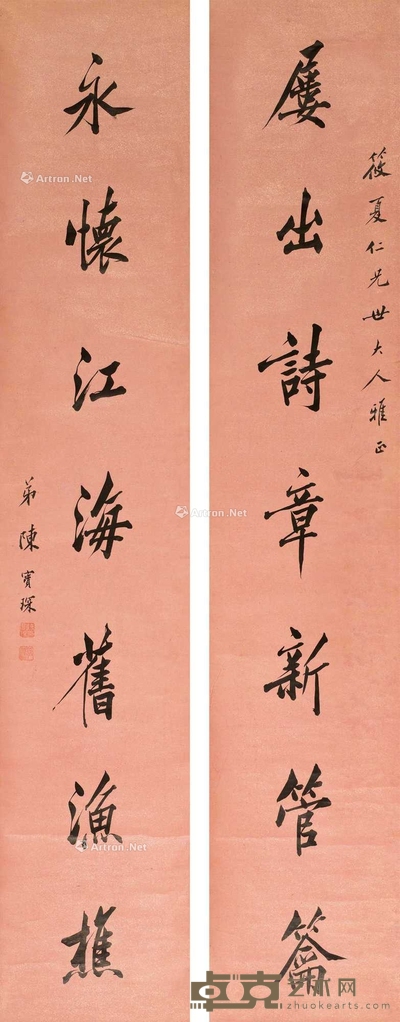 筱夏仁兄世大人雅正
屢出詩章新管籥
永懷江海舊漁樵
弟陳寶琛
Artron.Net
Artron.Net
Artron.Net
Artron.Net
Artron.Net
卓克艺术网
zhuokearts.com